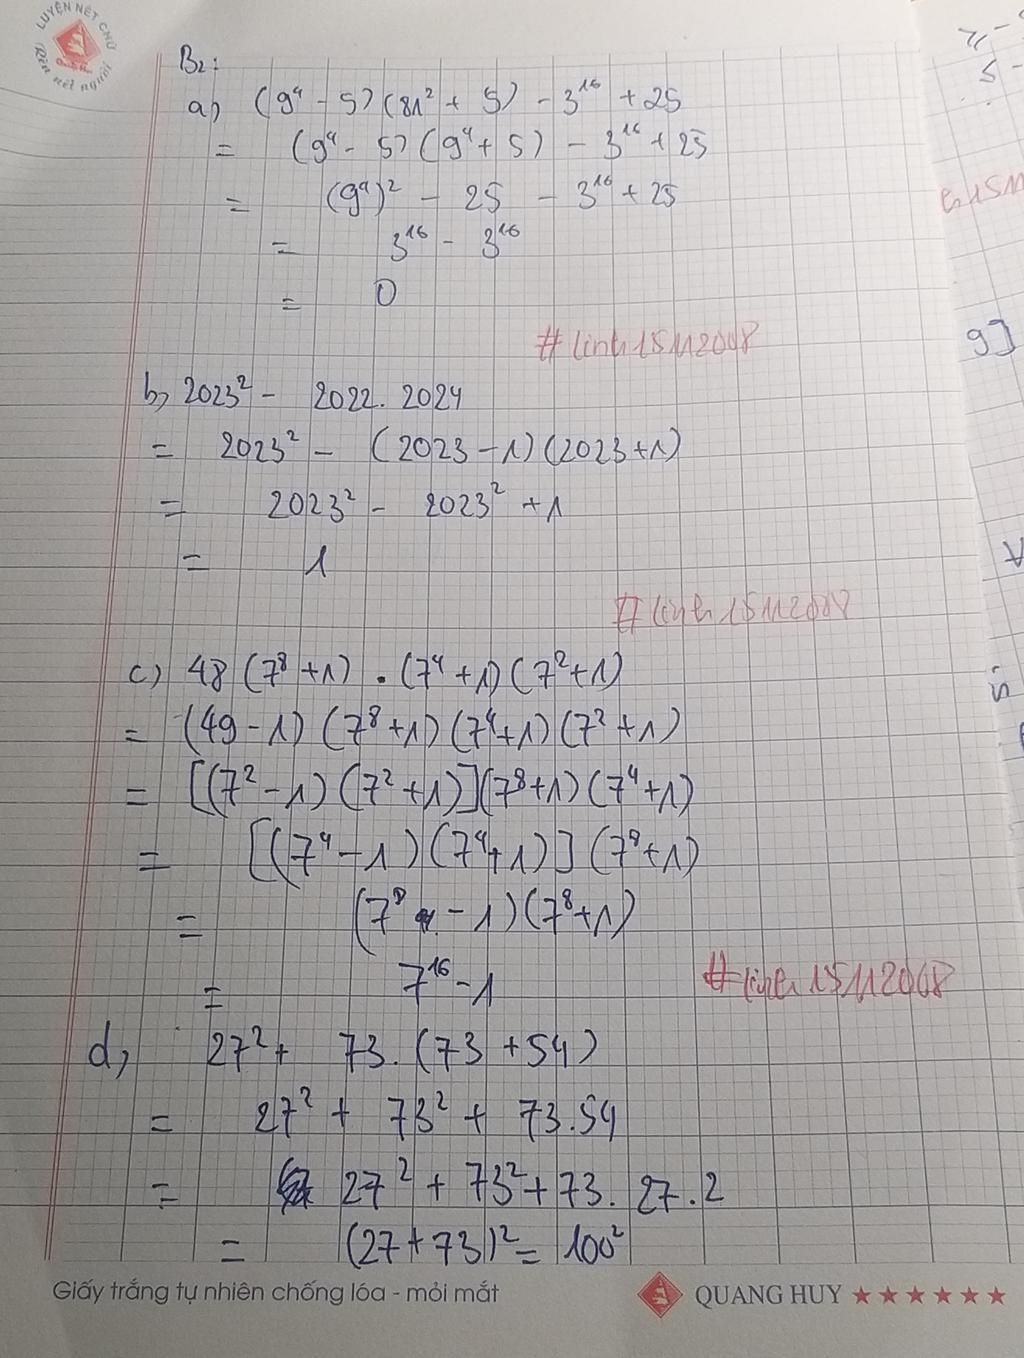 LUYỆN NÉT CHỮ
Rèn nết người
B2:
a) (9⁴ - 5) (81² + 5) - 3¹⁶ + 25
= (9⁴ - 5) (9⁴ + 5) - 3¹⁶ + 25
= (9⁴)² - 25 - 3¹⁶ + 25
= 3¹⁶ - 3¹⁶
= 0
#linh15112008
b, 2023² - 2022. 2024
= 2023² - (2023 - 1) (2023 + 1)
= 2023² - 2023² + 1
= 1
#linh15112008
c) 48 (7⁸ + 1) . (7⁴ + 1) (7² + 1)
= (49 - 1) (7⁸ + 1) (7⁴ + 1) (7² + 1)
= [(7² - 1) (7² + 1)] (7⁸ + 1) (7⁴ + 1)
= [(7⁴ - 1) (7⁴ + 1)] (7⁸ + 1)
= (7⁸ - 1) (7⁸ + 1)
= 7¹⁶ - 1
#linh15112008
d, 27² + 73. (73 + 54)
= 27² + 73² + 73.54
= 27² + 73² + 73. 27. 2
= (27 + 73)² = 100²
Giấy trắng tự nhiên chống lóa - mỏi mắt
QUANG HUY